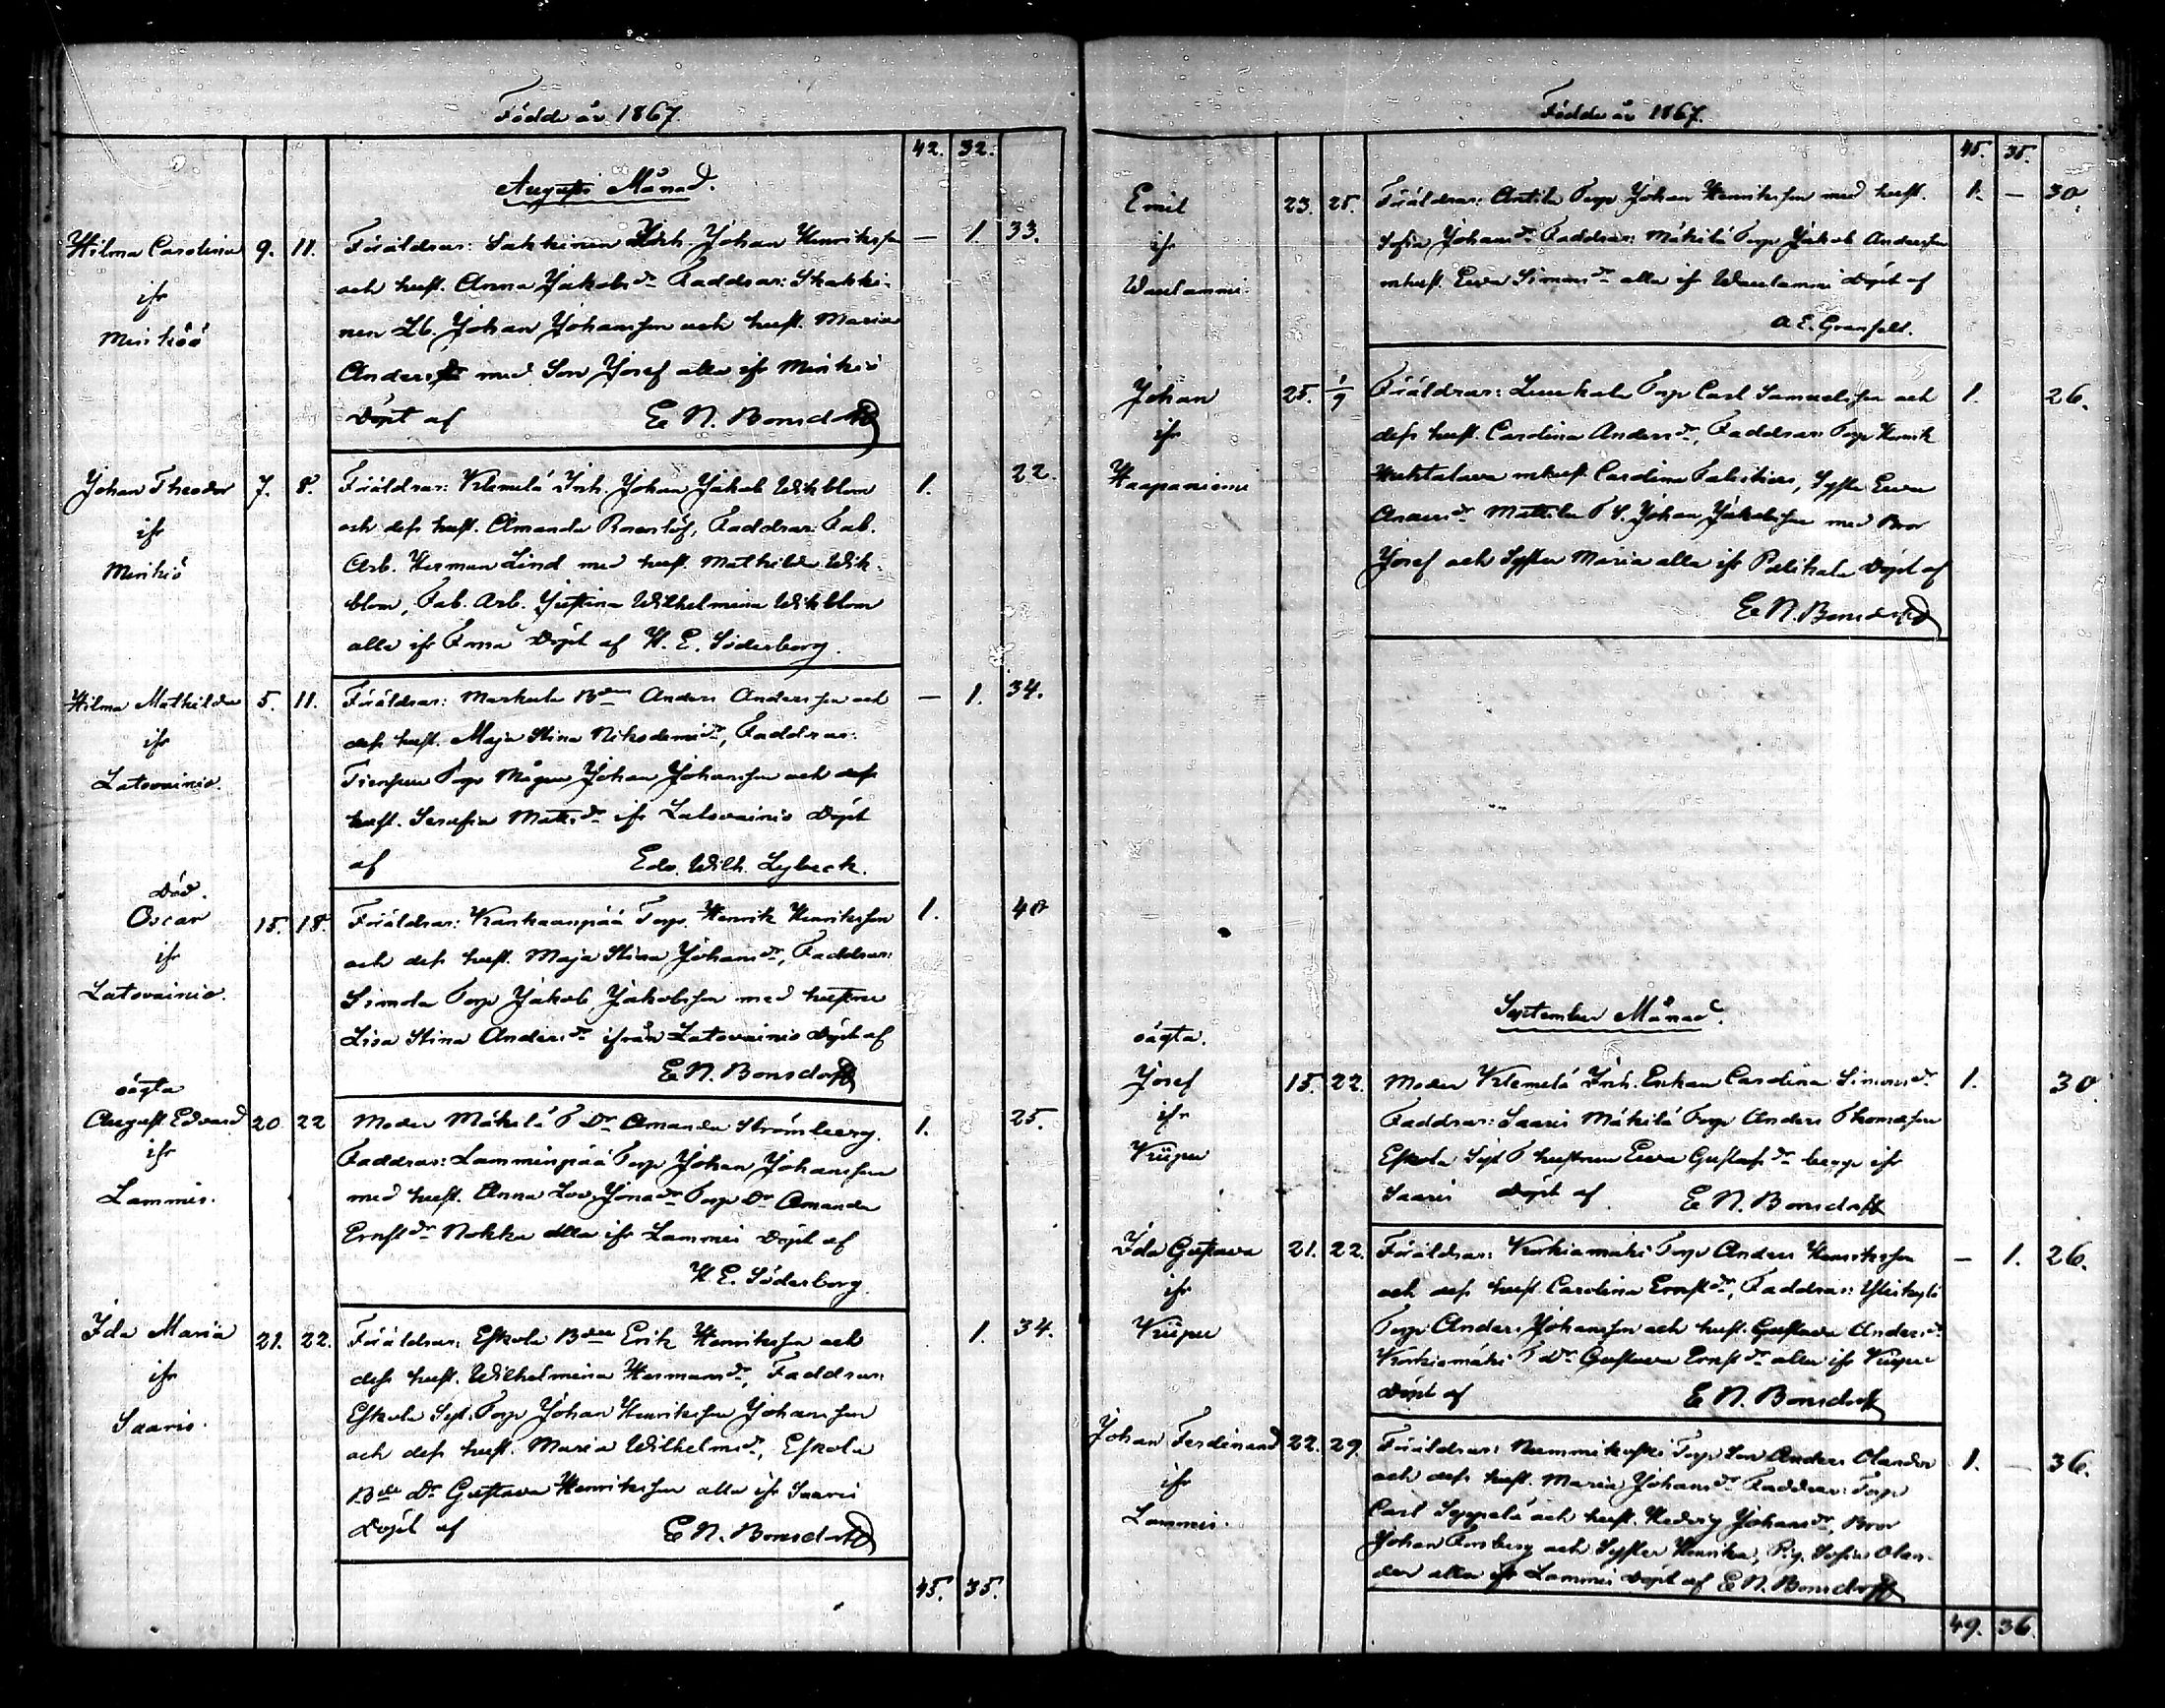 Födde år 1867.
42. 32.
Augusti Månad.
Hilma Carolina 9. 11. Föräldrar: Sakkinen Johan Henriksson — 1. 33.
ifr och hust. Anna Jakobsdr Faddrar: Skakki-
Mirikiö nen Johan Johansson och hust. Maria
Andersdr med Son Josef alla ifr Mirikiö
Döpt af E N. Bonsdorff
Johan Theodor 7. 8. Föräldrar: Klemelä Inh. Johan Jakob Wikblom 1. 22.
ifr och dess hust. Amanda Rosenlöf, Faddrar: Fab.
Mirikiö Arb. Herman Lind med hust. Mathilda Wik-
blom, Fab. Arb. Justina Wilhelmina Wikblom
alla ifr Forssa Döpt af H. E. Söderborg.
Hilma Mathilda 5. 11. Föräldrar: Markula Bden Anders Andersson och — 1. 34.
ifr dess hust. Maja Stina Nikodemidr, Faddrar:
Latovainio. Torp Mågen Johan Johansson och dess
hust. Serafia Mattsdr ifr Latovainio Döpt
af Edv. Wilh. Lybeck.
Död.
Oscar 15. 18. Föräldrar: Kankaanpää Torp. Henrik Henriksson 1. 40
ifr och dess hust. Maja Stina Johansdr, Faddrar:
Latovainio. Simola Torp Jakob Jakobsson med hustru
Lisa Stina Andersdr ifrån Latovainio Döpt af
E N. Bonsdorff
oägta
August Edvard 20 22 Moder Mäkilä T Dr Amanda Strömberg. 1. 25.
ifr Faddrar: Lamminpää Torp Johan Johansson
Lammis. med hust. Anna Lov. Jonadr Torp Dr Amanda
Ernstdr Nokka alla ifr Lammis Döpt af
H E. Söderborg.
Ida Maria 21. 22. Föräldrar: Eskola Bden Erik Henriksson och 1. 34.
ifr dess hust. Wilhelmina Hermansdr, Faddrar:
Saaris. Eskola Syt. Torp Johan Henriksson Johansson
och dess hust. Maria Wilhelmsdr, Eskola
Bde Dr Gustava Henriksson alla ifr Saaris
Döpt af E N. Bonsdorff
45. 35.
Födde år 1867.
45. 35.
Emil 23. 25. Föräldrar: Antila Torp Johan Henriksson med hust. 1. — 30.
ifr Sofia Johansdr Faddrar: Mäkilä Torp Jakob Andersson
Waulammi. mhust. Eva Simonsdr alla ifr Waulammi Döpt af
A E. Granfelt.
Johan 25. 1/9 Föräldrar: Torp Carl Samuelsson och 1. 26.
ifr dess hust. Carolina Andersdr, Faddrar Torp Henrik
Haapaniemi mhust Carolina Syster Eva
Andersdr Mattila Johan Jakobsson med Bror
Josef och Syster Maria alla ifr Palikala Döpt af
E N. Bonsdorff
September Månad.
oägta.
Josef 15. 22. Moder Klemelä Inh. Enkan Carolina Simonsdr 1. 30.
ifr Faddrar: Saaris Mäkilä Torp Anders Thomasson
Kuipu Eskola Syt T hustrun Eva Gustafsdr begge ifr
Saaris Döpt af E N. Bonsdorff
Ida Gustava 21. 22. Föräldrar: Korkiamäki Torp Anders Henriksson — 1. 26.
ifr och dess hust. Carolina Ernstdr, Faddrar: Ylikylä
Kuipu Torp Anders Johansson och hust. Gustava Andersdr
Korkiamäki T Dr Gustava Ernstdr alla ifr Kuipu
Döpt af E N. Bonsdorff
Johan Ferdinand 22. 29. Föräldrar: Nummikoski Torp Son Anders Olander 1. — 36.
ifr och dess hust. Maria Johansdr Faddrar: Torp
Lammis. Carl Seppelä och hust. Hedvig Johansdr, Bror
Johan Forsberg och Syster Henrika, Pig. Sofia Olan-
der alla ifr Lammis Döpt af E N. Bonsdorff
49. 36.